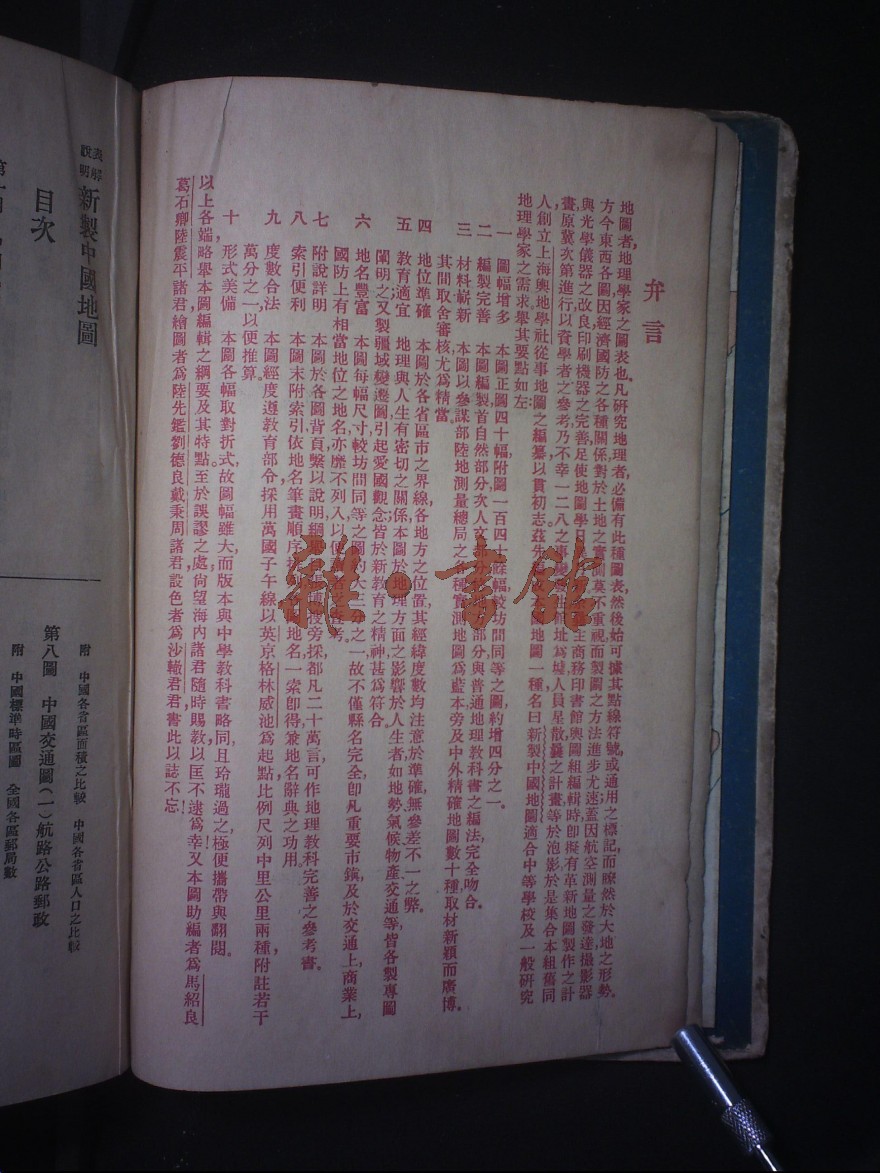 弁言
地圖者,地理學家之圖表也,凡研究地理者,必備有此種圖表,然後始可據其點線符號,或通用之標記,而瞭然於大地之形勢。
方今東西各圖,因經濟國防之各種關係,對於土地之實測,莫不重視,而製圖之方法,進步尤速,蓋因航空測量之發達,攝影器
與光學儀器之改良,印刷機器之完善,足使地圖學日 主商務印書館輿圖組編輯時,即擬有革新地圖製作之計
畫,原冀次第進行,以資學者之參考,乃不幸一二八之事變 址爲墟,人員星散,曩之計畫,等於泡影,於是集合本組舊同
人,創立上海輿地學社,從事地圖之編纂,以貫初志,茲先 國地圖一種,名曰新製中國地圖,適合中等學校及一般研究
地理學家之需求,舉其要點如左:
一 圖幅增多 本圖正圖四十幅,附圖一百四十餘幅,較坊間同等之圖,約增四分之一。
二 編製完善 本圖編製首自然部分,次人 部分,與普通地理教科書之編法,完全吻合。
三 材料嶄新 本圖以參謀部陸地測量總局之 種實測地圖爲藍本,旁及中外精確地圖數十種,取材新穎而廣博,
其間取舍審核,尤爲精當。
四 地位準確 本圖於各省區市之界線,各地方之位置,其經緯度數,均注意於準確,無參差不一之弊。
五 教育適宜 地理與人生有密切之關係,本圖於地理方面之影響於人生者,如地勢氣候物產交通等,皆各製專圖
闡明之,又製疆域變遷圖,引起愛國觀念,皆於新教育之精神,甚爲符合。
六 地名豐富 本圖每幅尺寸,較坊間同等之圖,約大二分之一,故不僅縣名完全,即凡重要市鎮,及於交通上,商業上,
國防上有相當地位之地名,亦靡不列入,以便 考。
七 附說詳明 本圖於各圖背頁,繫以說明,綱 博搜旁採,都凡二十萬言,可作地理教科完善之參考書。
八 索引便利 本圖末附索引,依地名筆畫順序 地名,一索即得,兼地名辭典之功用。
九 度數合法 本圖經度遵教育部令,採用萬國子午線,以英京格林威池爲起點,比例尺列中里公里兩種,附註若干
萬分之一,以便推算。
十 形式美備 本圖各幅取對折式,故圖幅雖大,而版本與中學教科書略同,且玲瓏過之,極便攜帶與翻閱。
以上各端,略舉本圖編輯之綱要,及其特點,至於誤謬之處,尙望海內諸君,隨時賜教,以匡不逮爲幸,又本圖助編者爲馬紹良
葛石卿陸震平諸君,繪圖者爲陸先鑑劉德良戴秉周諸君,設色者爲沙轍君,君書此以誌不忘!
表解
說明
新製中國地圖
目次
附 中國各省區面積之比較 中國各省區人口之比較
第八圖 中國交通圖(一)航路公路郵政
附 中國標準時區圖 全國各區郵局數
雜·書館